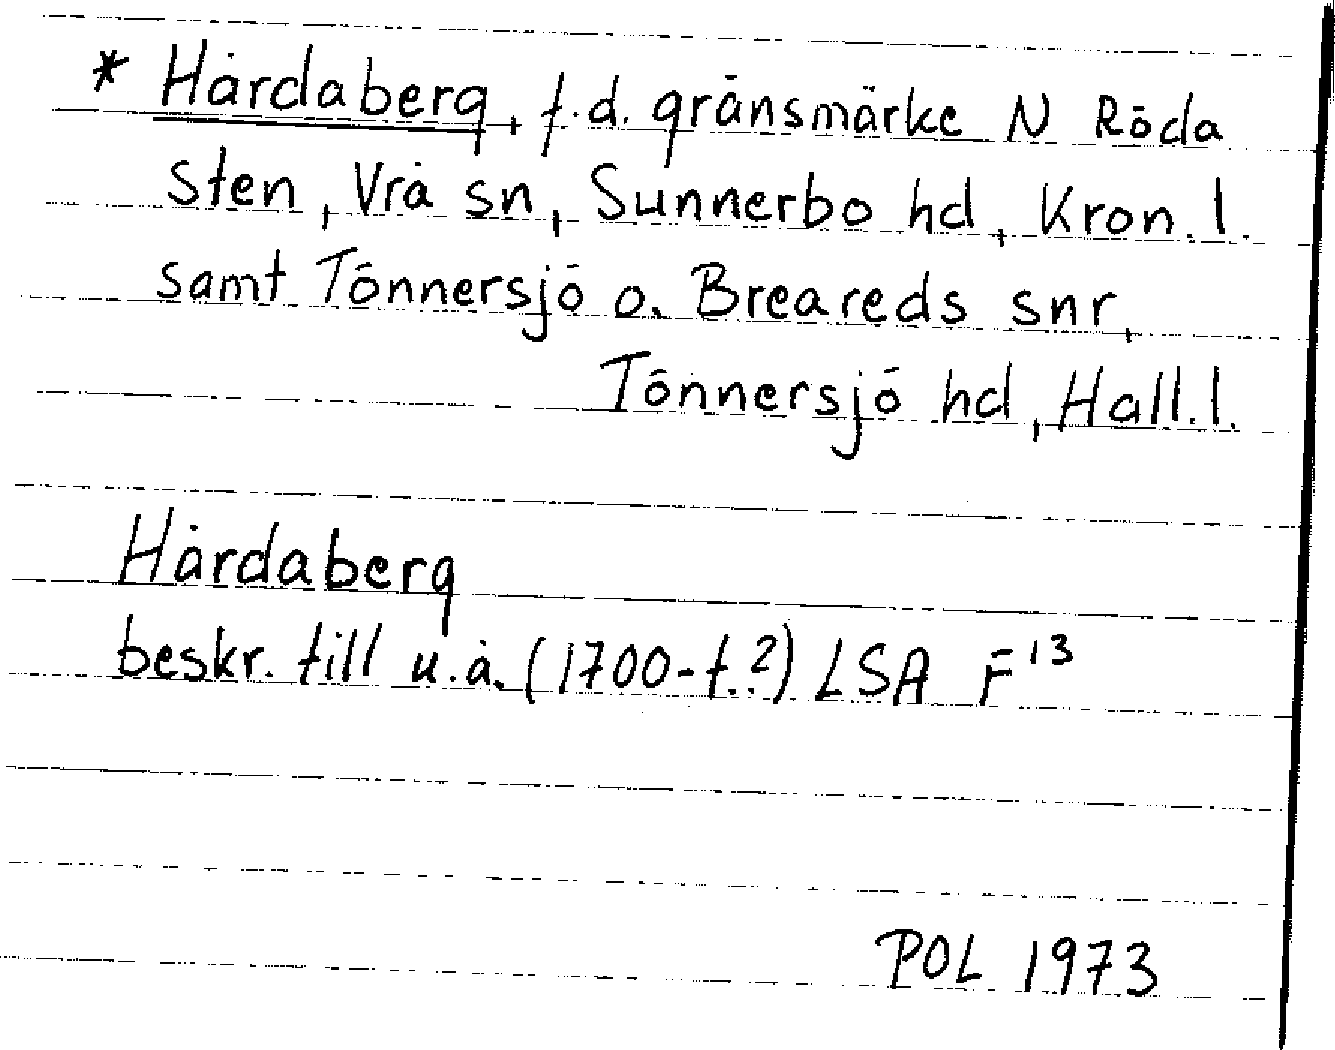 * Hårdaberg, f.d. gränsmärke N Röda
Sten, Vrå sn, Sunnerbo hd, Kron. l.
samt Tönnersjö o. Breareds snr,
Tönnersjö hd, Hall. l.
Hårdaberg
beskr. till u.å. (1700-t.?) LSA F¹³
POL 1973